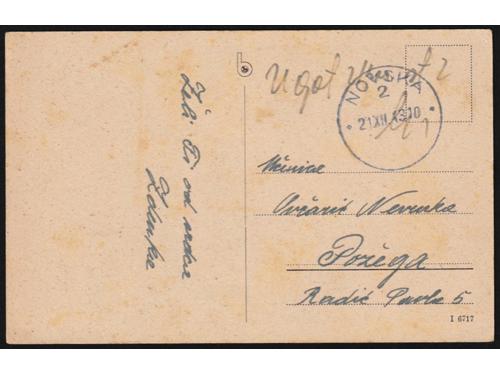 Želi Ti od srca
Zdenka
U got
NOVSKA
2
21XII 43 10
Učenice
Ovčarić Nevenka
Požega
Radić Pavla 5
I 6717